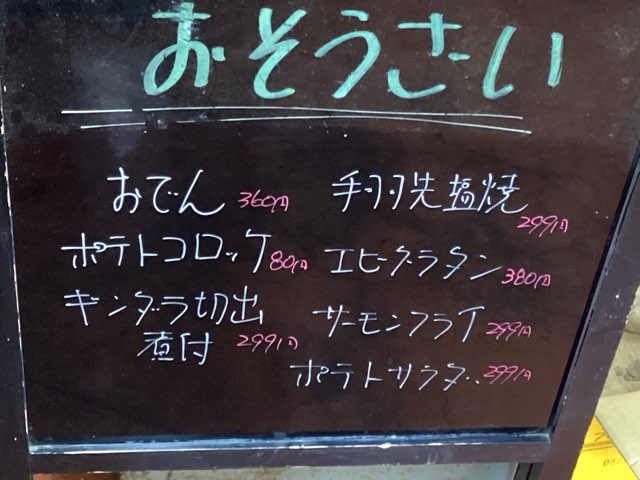 おそうさい
おでん 360円
ポテトコロッケ 80円
ギンダラ切出
煮付 299円
手羽先塩焼
299円
エビグラタン 380円
サーモンフライ 299円
ポテトサラダ 299円